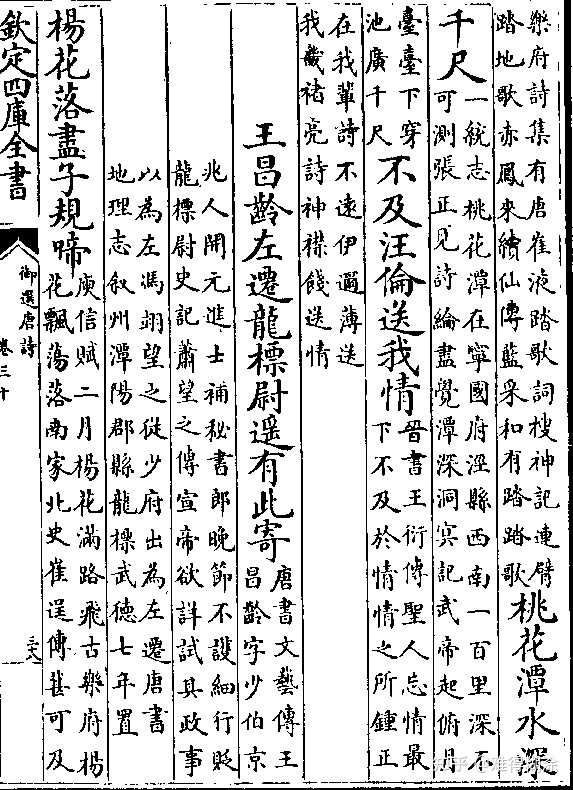 樂府詩集有唐崔液踏歌詞搜神記連臂
踏地歌赤鳳來續仙傳藍采和有踏踏歌
桃花潭水深
千尺
一統志桃花潭在寧國府涇縣西南一百里深不
可測張正見詩綸盡覺潭深洞冥記武帝起俯月
臺臺下穿
池廣千尺
不及汪倫送我情
晉書王衍傳聖人忘情最
下不及於情情之所鍾正
在我輩詩不遠伊邇薄送
我畿褚亮詩神襟餞送情
王昌齡左遷龍標尉遥有此寄
唐書文藝傳王
昌齡字少伯京
兆人開元進士補秘書郎晚節不護細行貶
龍標尉史記蕭望之傳宣帝欲詳試其政事
以為左馮翊望之從少府出為左遷唐書
地理志叙州潭陽郡縣龍標武德七年置
楊花落盡子規啼
庾信賦二月楊花滿路飛古樂府楊
花飄蕩落南家北史崔逞傳甚可及
欽定四庫全書
御選唐詩
卷三十
知乎